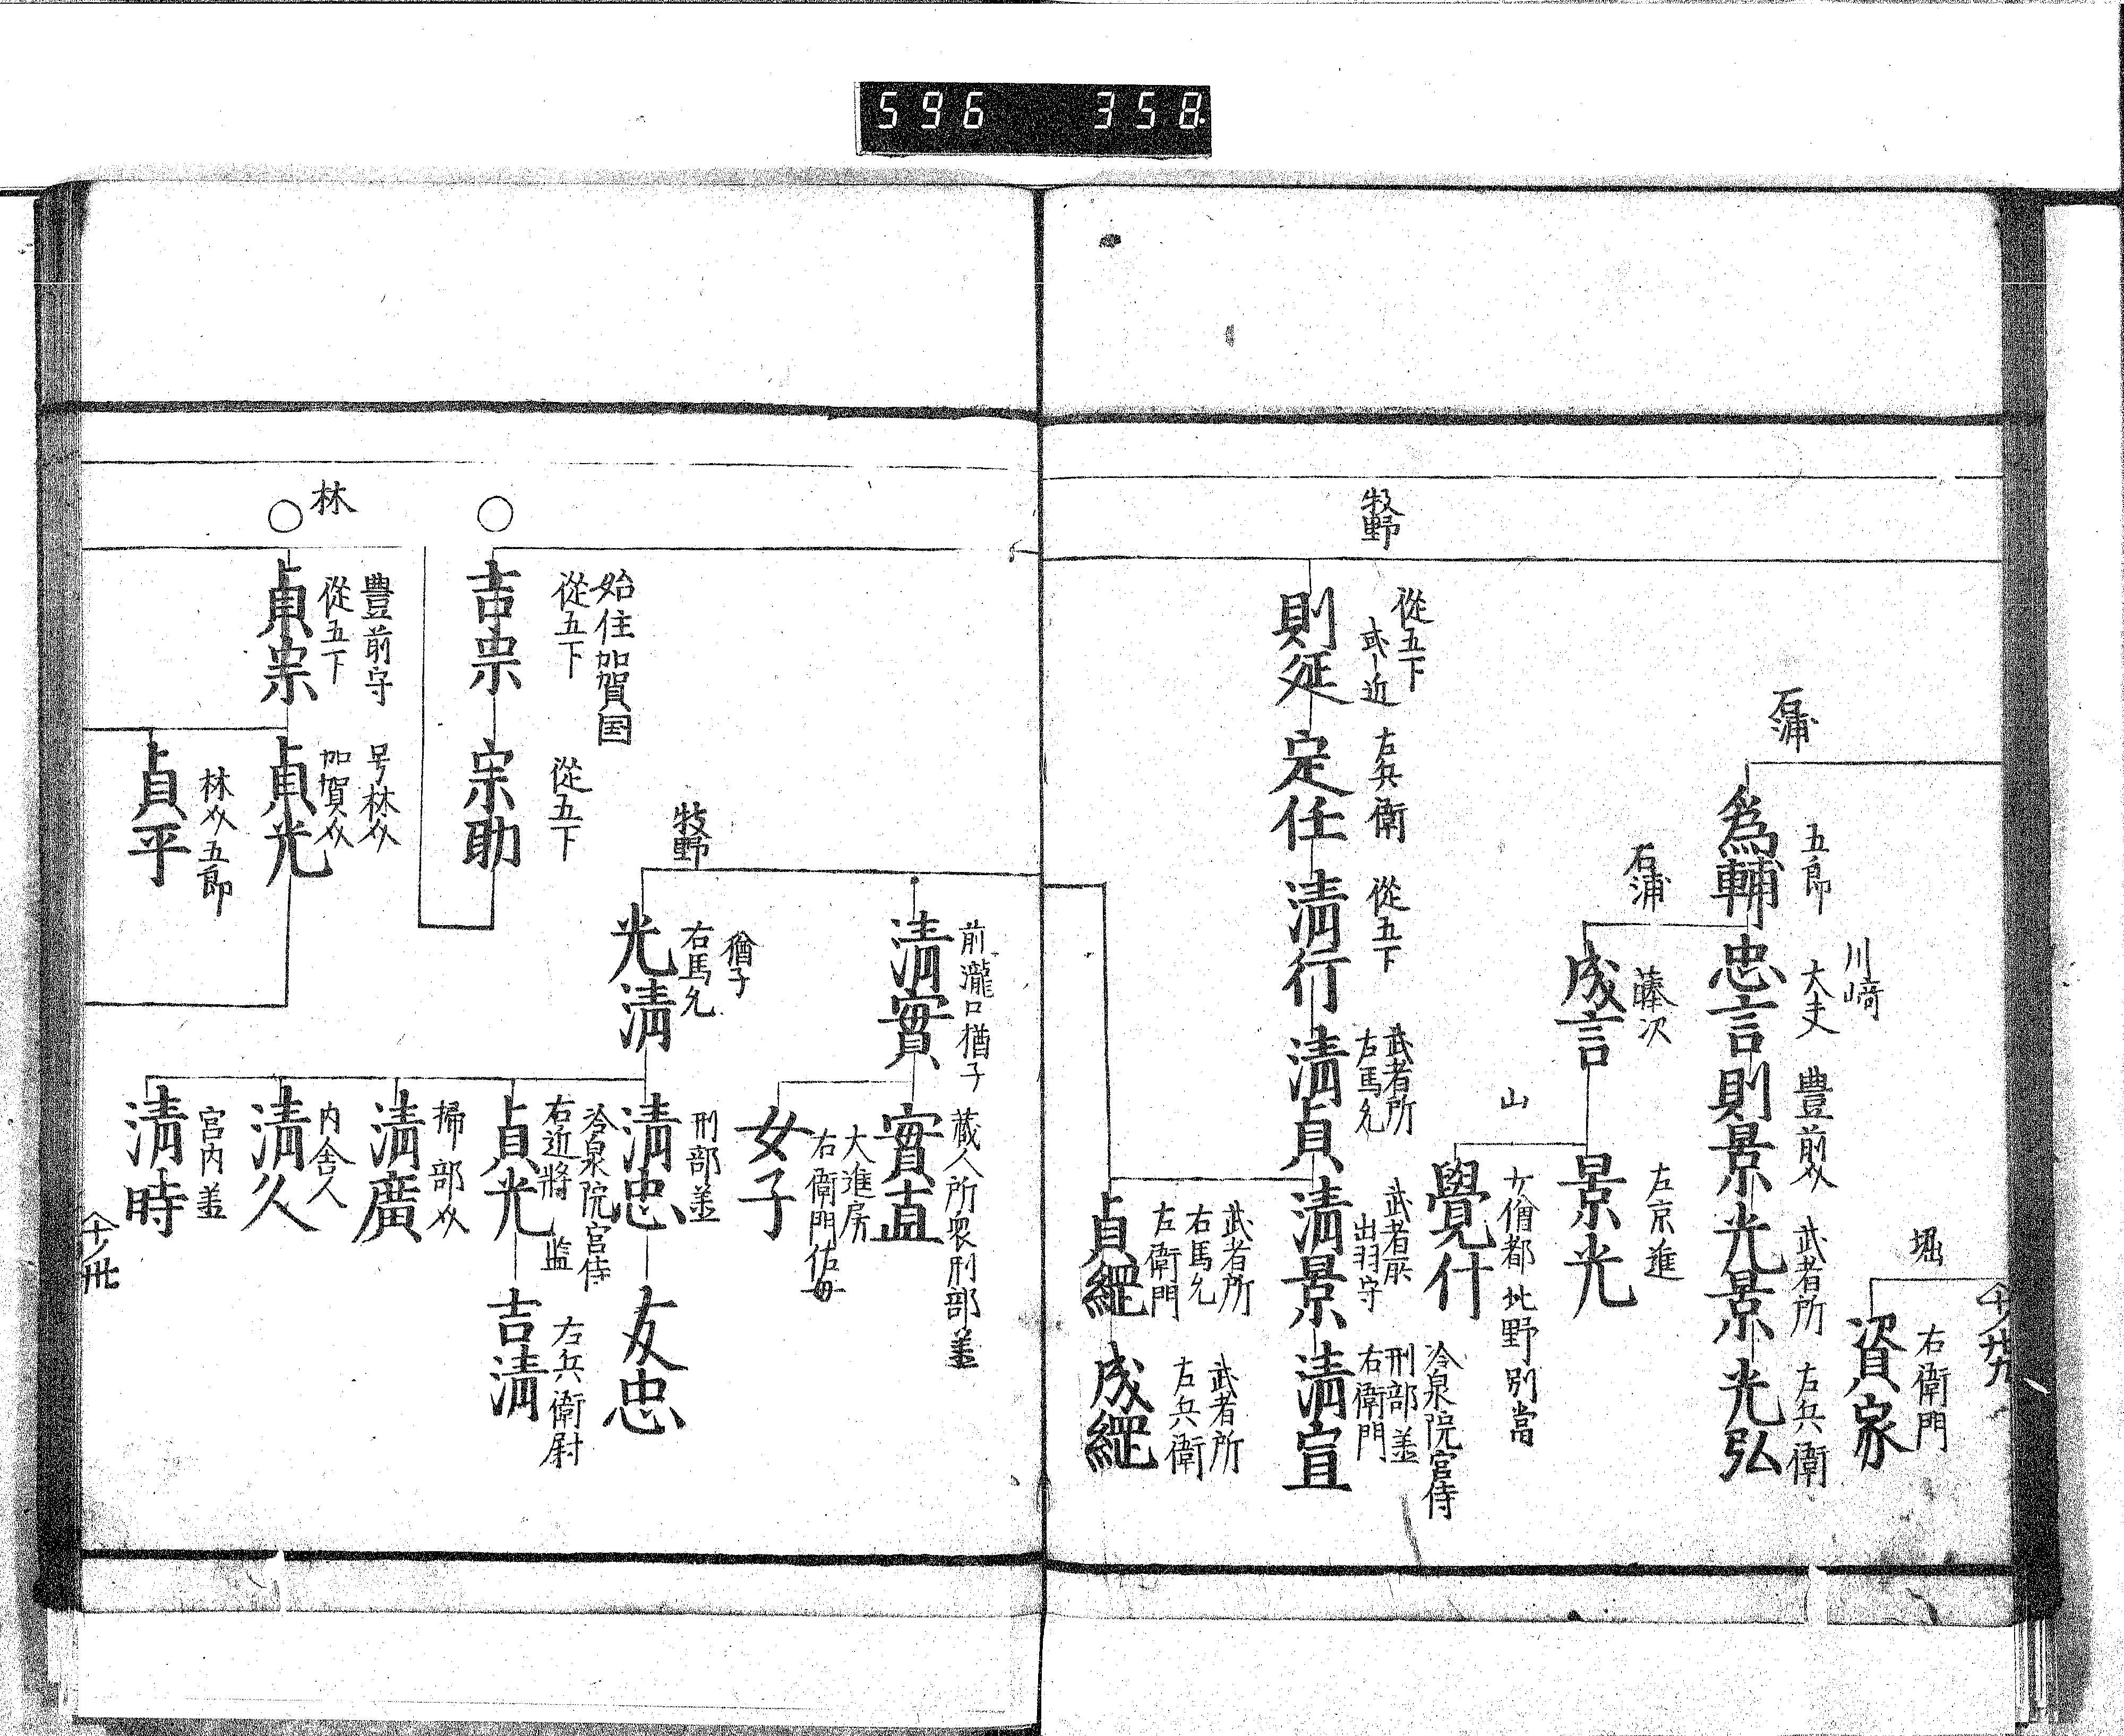 596 358
堀
資家
右衛門
石浦
為輔
五郎
川﨑
忠言
大夫
則景
豊前
光景
武者所
光弘
左兵衛
石浦
成言
藤次
景光
左京進
山
覺什
少僧都 北野別當
牧野
則延
從五下
或近
定任
左兵衛
清行
從五下
清貞
武者所
右馬允
清景
武者所
出羽守
清宣
冷泉院宮侍
刑部丞
右衛門
貞繩
武者所
右馬允
左衛門
成繩
武者所
左兵衛
清實
前瀧口猶子
實直
蔵人所衆刑部丞
女子
大進房
右衛門佐母
牧野
光清
猶子
右馬允
清忠
刑部丞
友忠
貞光
冷泉院宮侍
右近將監
吉清
右兵衛尉
清廣
掃部
清久
内舎人
清時
宮内丞
○
吉宗
始住加賀国
從五下
宗助
從五下
○
林
貞宗
豊前守
從五下
貞光
号林
加賀
貞平
林 五郎
十ノ卅